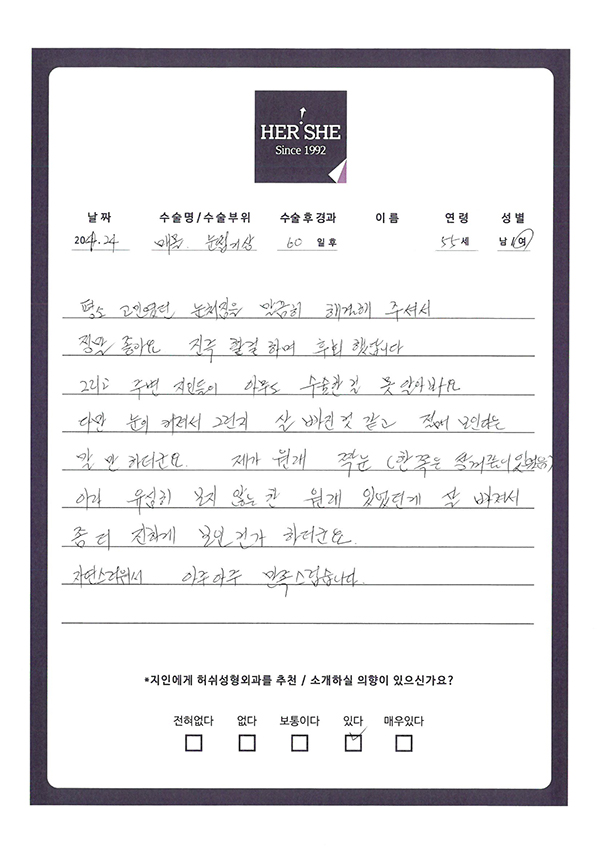 HER SHE
Since 1992
날 짜 수술명/수술부위 수술후경과 이 름 연 령 성 별
매몰. 눈밑지방 60 일 후 55세 남/여
평소 고민였던 눈처짐을 말끔히 해결해 주셔서
정말 좋아요 진즉 할걸 하며 후회 했답니다
그리고 주변 지인들이 아무도 수술한걸 못 알아봐요
다만 눈이 커져서 그런지 살 빠진것 같고 젊어 보인다는
말 만 하더군요. 제가 원래 짝눈 (한쪽은 쌍꺼풀이 있었음)
이라 유심히 보지 않는 한 원래 있었던게 살 빠져서
좀 더 진하게 보인 건가 하더군요.
자연스러워서 아주아주 만족스럽습니다.
*지인에게 허쉬성형외과를 추천 / 소개하실 의향이 있으신가요?
전혀없다 없다 보통이다 있다 매우있다